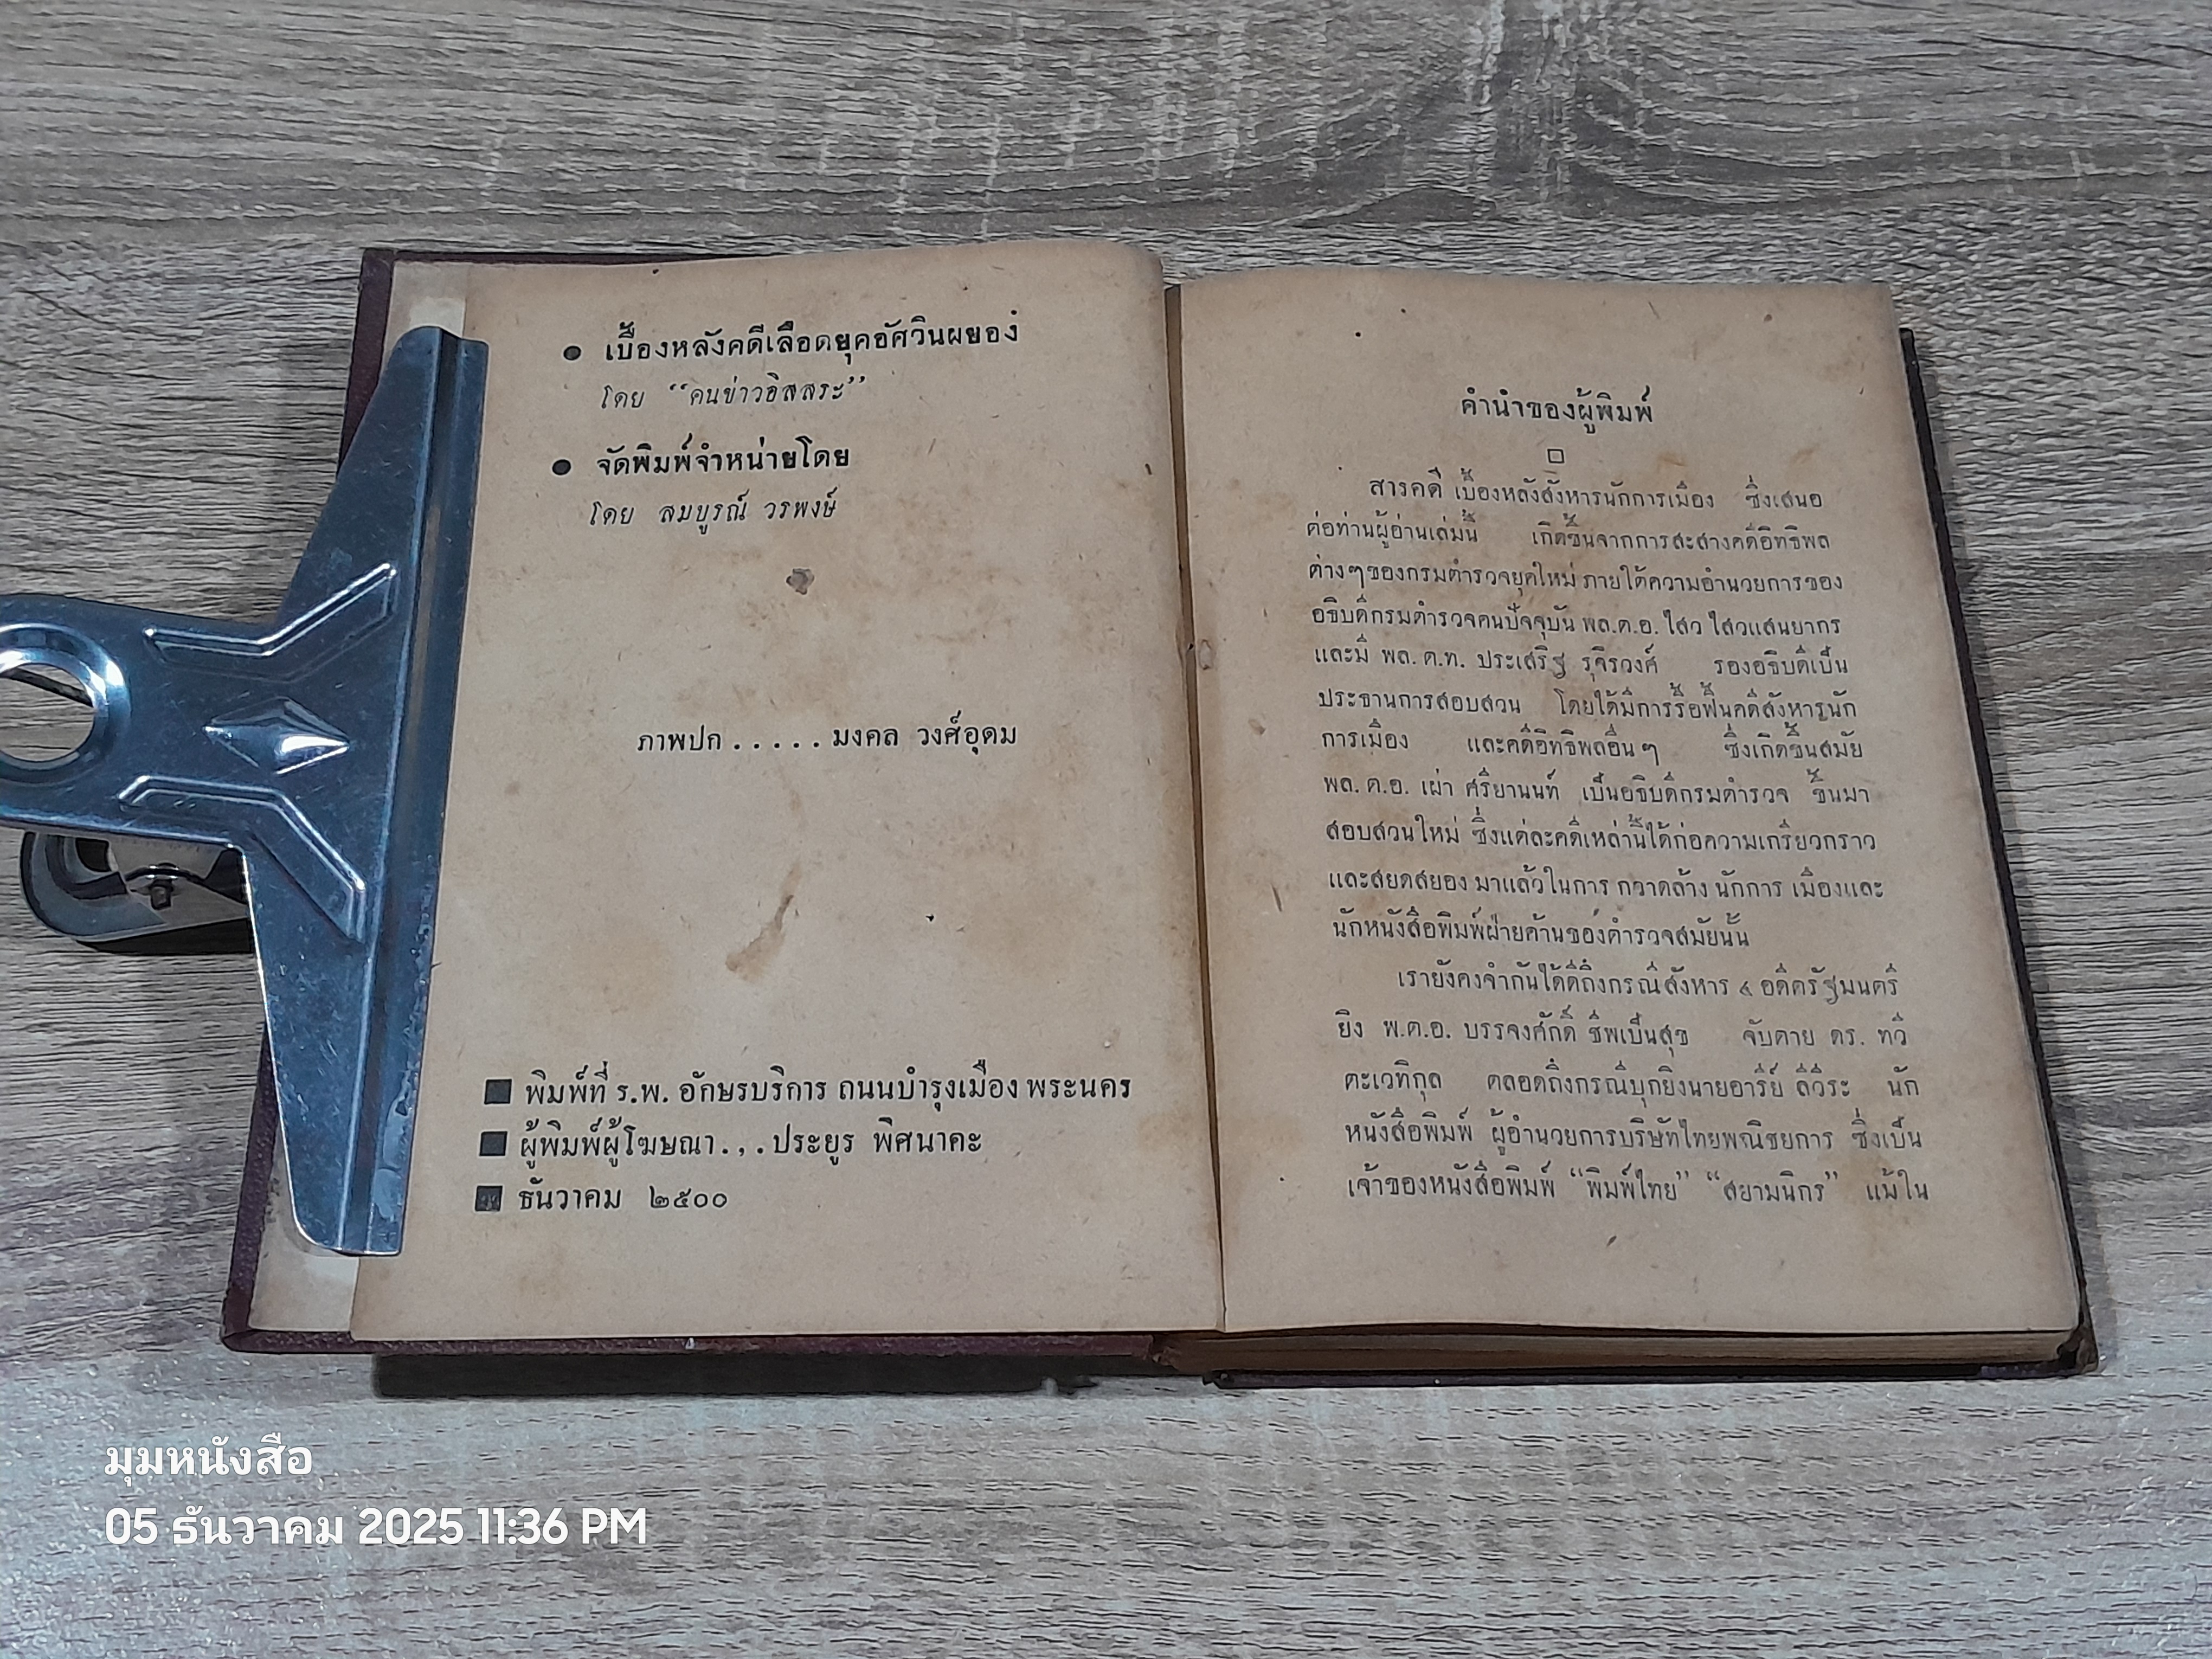 ● เบื้องหลังคดีเลือดยุคอัศวินผยอง
โดย “คนข่าวอิสสระ”
● จัดพิมพ์จำหน่ายโดย
โดย สมบูรณ์ วรพงษ์
ภาพปก . . . . . มงคล วงศ์อุดม
■ พิมพ์ที่ ร.พ. อักษรบริการ ถนนบำรุงเมือง พระนคร
■ ผู้พิมพ์ผู้โฆษณา . , . ประยูร พิศนาคะ
■ ธันวาคม ๒๕๐๐
คำนำของผู้พิมพ์
□
สารคดี เบื้องหลังสังหารนักการเมือง ซึ่งเสนอ
ต่อท่านผู้อ่านเล่มนี้ เกิดขึ้นจากการสะสางคดีอิทธิพล
ต่างๆของกรมตำรวจยุคใหม่ ภายใต้ความอำนวยการของ
อธิบดีกรมตำรวจคนปัจจุบัน พล.ต.อ. ไสว ไสวแสนยากร
และมี พล.ต.ท. ประเสริฐ รุจิรวงศ์ รองอธิบดีเป็น
ประธานการสอบสวน โดยได้มีการรื้อฟื้นคดีสังหารนัก
การเมือง และคดีอิทธิพลอื่นๆ ซึ่งเกิดขึ้นสมัย
พล.ต.อ. เผ่า ศรียานนท์ เป็นอธิบดีกรมตำรวจ ขึ้นมา
สอบสวนใหม่ ซึ่งแต่ละคดีเหล่านี้ได้ก่อความเกรียวกราว
และสยดสยอง มาแล้วในการ กวาดล้าง นักการ เมืองและ
นักหนังสือพิมพ์ฝ่ายค้านของตำรวจสมัยนั้น
เรายังคงจำกันได้ดีถึงกรณีสังหาร ๔ อดีตรัฐมนตรี
ยิง พ.ต.อ. บรรจงศักดิ์ ชีพเป็นสุข จับตาย ดร. ทวี
ตะเวทิกุล ตลอดถึงกรณีบุกยิงนายอารีย์ ลีวีระ นัก
หนังสือพิมพ์ ผู้อำนวยการบริษัทไทยพณิชยการ ซึ่งเป็น
เจ้าของหนังสือพิมพ์ “พิมพ์ไทย” “สยามนิกร” แม้ใน
มุมหนังสือ
05 ธันวาคม 2025 11:36 PM